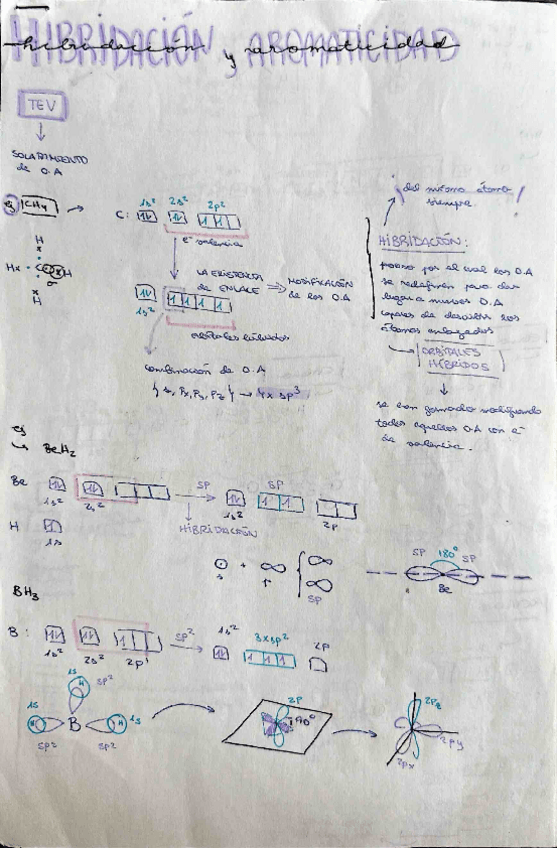 HIBRIDACIÓN y AROMATICIDAD
hibridación y aromaticidad
TEV
SOLAPAMIENTO
de O.A
ej CH4
H
Hx C xH
σ
x
H
1s² 2s² 2p²
C:
e⁻ valencia
LA EXISTENCIA
de ENLACE ⇒ MODIFICACIÓN
de los O.A
1s²
orbitales híbridos
combinación de O.A
{ s, Px, Py, Pz } → 4x sp³
del mismo átomo
siempre.
HIBRIDACIÓN:
proceso por el cual los O.A
se redefinen para dar
lugar a nuevos O.A
capaces de describir los
átomos enlazados
ORBITALES
HÍBRIDOS
todos aquellos O.A con e⁻
de valencia.
ej
BeH2
Be
1s² 2s²
SP
HIBRIDACIÓN
SP
1s² 2p
H
1s
s + P
SP
SP 180° SP
Be
BH3
B:
1s² 2s² 2p¹
SP²
1s² 3xsp² 2p
1s
H SP²
1s H B H 1s
SP² SP²
2P
90°
2Pz
2Py
2Px